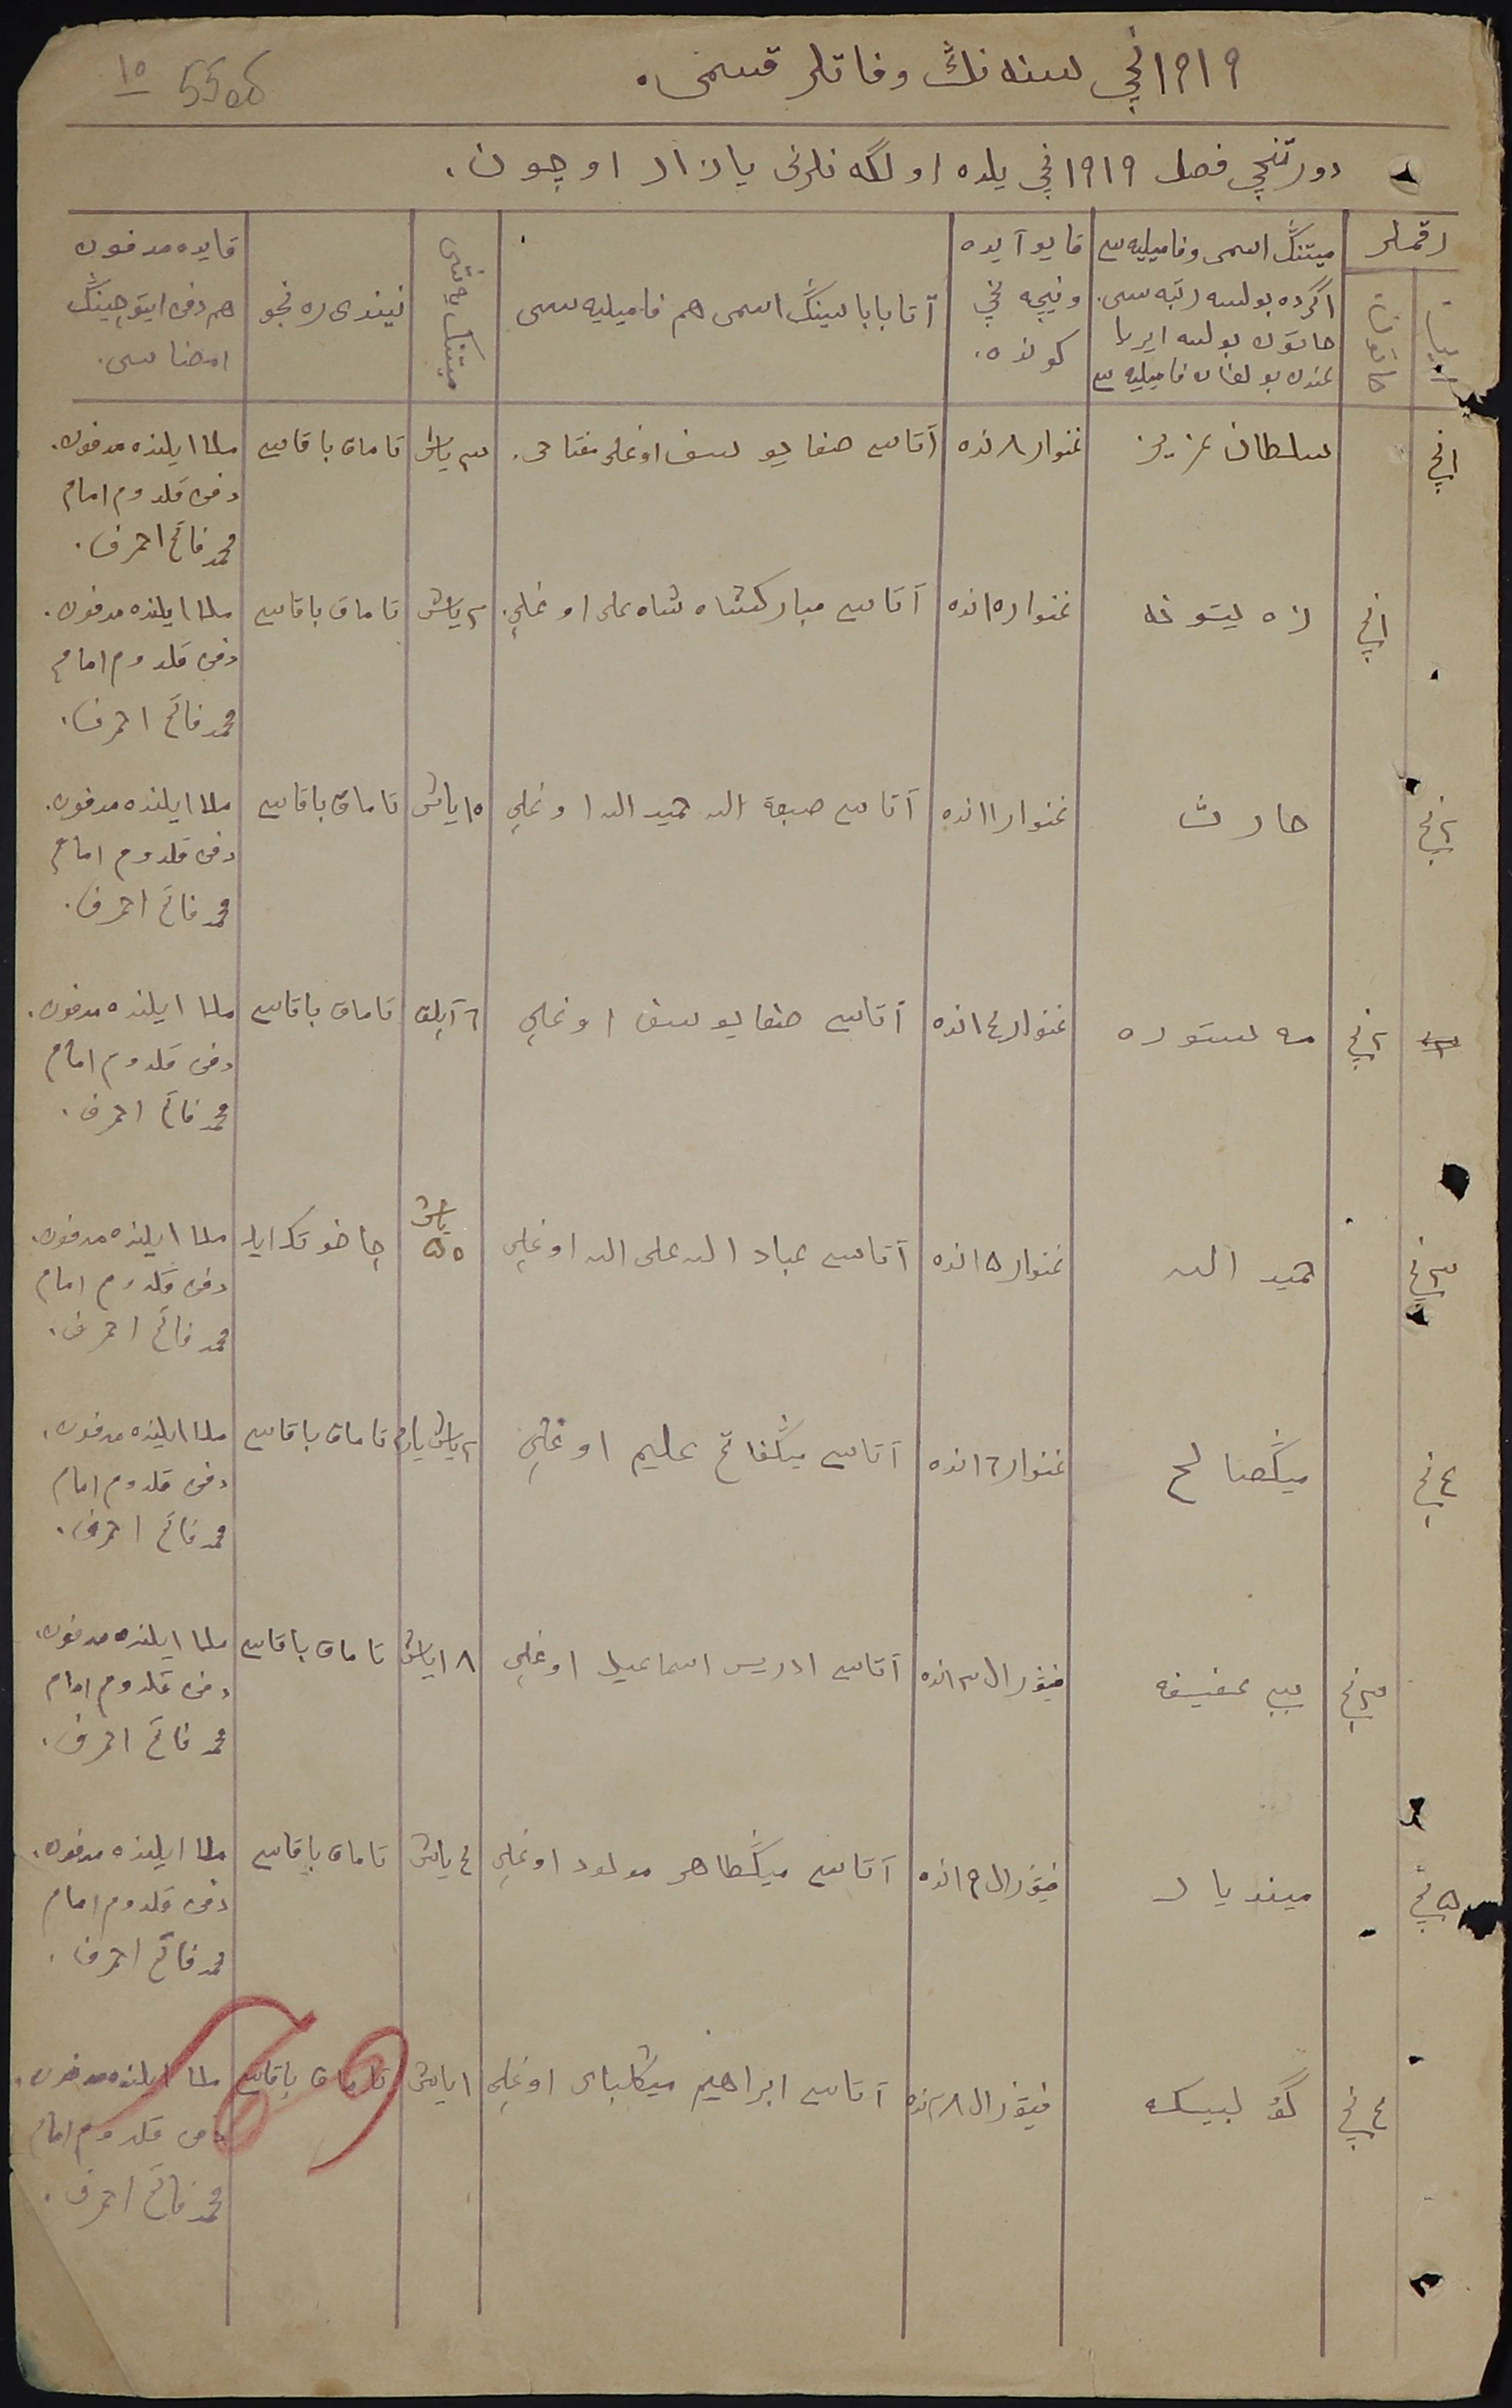 ١٩١٩نچی سنه نڭ وفاتلر قسمی.
١٥
دورتنچی فصل ١٩١٩نچی یلده اولگه نلرنی یازار اوچون.
رقملر
میتنڭ اسمی وفامیلیه سی
اگرده بولسه رتبه سی.
خاتون بولسه ایرینڭ
بولغان فامیلیه سی
قایو آیده
ونیچه نچی
کونده.
آتا باباسینڭ اسمی هم فامیلیه سی
میتنڭ یاشی
نیندی ره نجو
قایده مدفون
هم دفن ایتوچینڭ
امضاسی.
١نچی
سلطان عزیز
غنوار ٨نده
آتاسی صفا یوسف اوغلی مفتاحی.
٣ یاش
تاماق باقاسی
ملا ایلنده مدفون.
دفن قلدوم امام
محمد فاتح احمرف.
١نچی
زه یتونه
غنوار ١٥نده
آتاسی مبارکشاه شاه علی اوغلی.
٢ یاش
تاماق باقاسی
ملا ایلنده مدفون.
دفن قلدوم امام
محمد فاتح احمرف.
٢نچی
حارث
غنوار ١١نده
آتاسی صبغة الله حمید الله اوغلی
١٥ یاش
تاماق باقاسی
ملا ایلنده مدفون.
دفن قلدوم امام
محمد فاتح احمرف.
٢نچی
مه ستوره
غنوار ١٤نده
آتاسی صفا یوسف اوغلی
٦ آیلق
تاماق باقاسی
ملا ایلنده مدفون.
دفن قلدوم امام
محمد فاتح احمرف.
٣نچی
حمید الله
غنوار ١٥نده
آتاسی عباد الله علی الله اوغلی
یاش
٥٥
چاخوتکدایلا
ملا ایلنده مدفون.
دفن قلدوم امام
محمد فاتح احمرف.
٤نچی
میڭصالح
غنوار ١٦نده
آتاسی میڭفاتح علیم اوغلی
٢ یاش یارم
تاماق باقاسی
ملا ایلنده مدفون.
دفن قلدوم امام
محمد فاتح احمرف.
٣نچی
بیبی عفیفه
فیورال ٣نده
آتاسی ادریس اسماعیل اوغلی
١٨ یاش
تاماق باقاسی
ملا ایلنده مدفون.
دفن قلدوم امام
محمد فاتح احمرف.
٥نچی
میندیار
فیورال ١٩نده
آتاسی میڭطاهر مولود اوغلی
٤ یاش
تاماق باقاسی
ملا ایلنده مدفون.
دفن قلدوم امام
محمد فاتح احمرف.
٤نچی
گؤلبیکه
فیورال ٢٨نده
آتاسی ابراهیم میڭلبای اوغلی
١ یاش
تاماق باقاسی
ملا ایلنده مدفون.
دفن قلدوم امام
محمد فاتح احمرف.